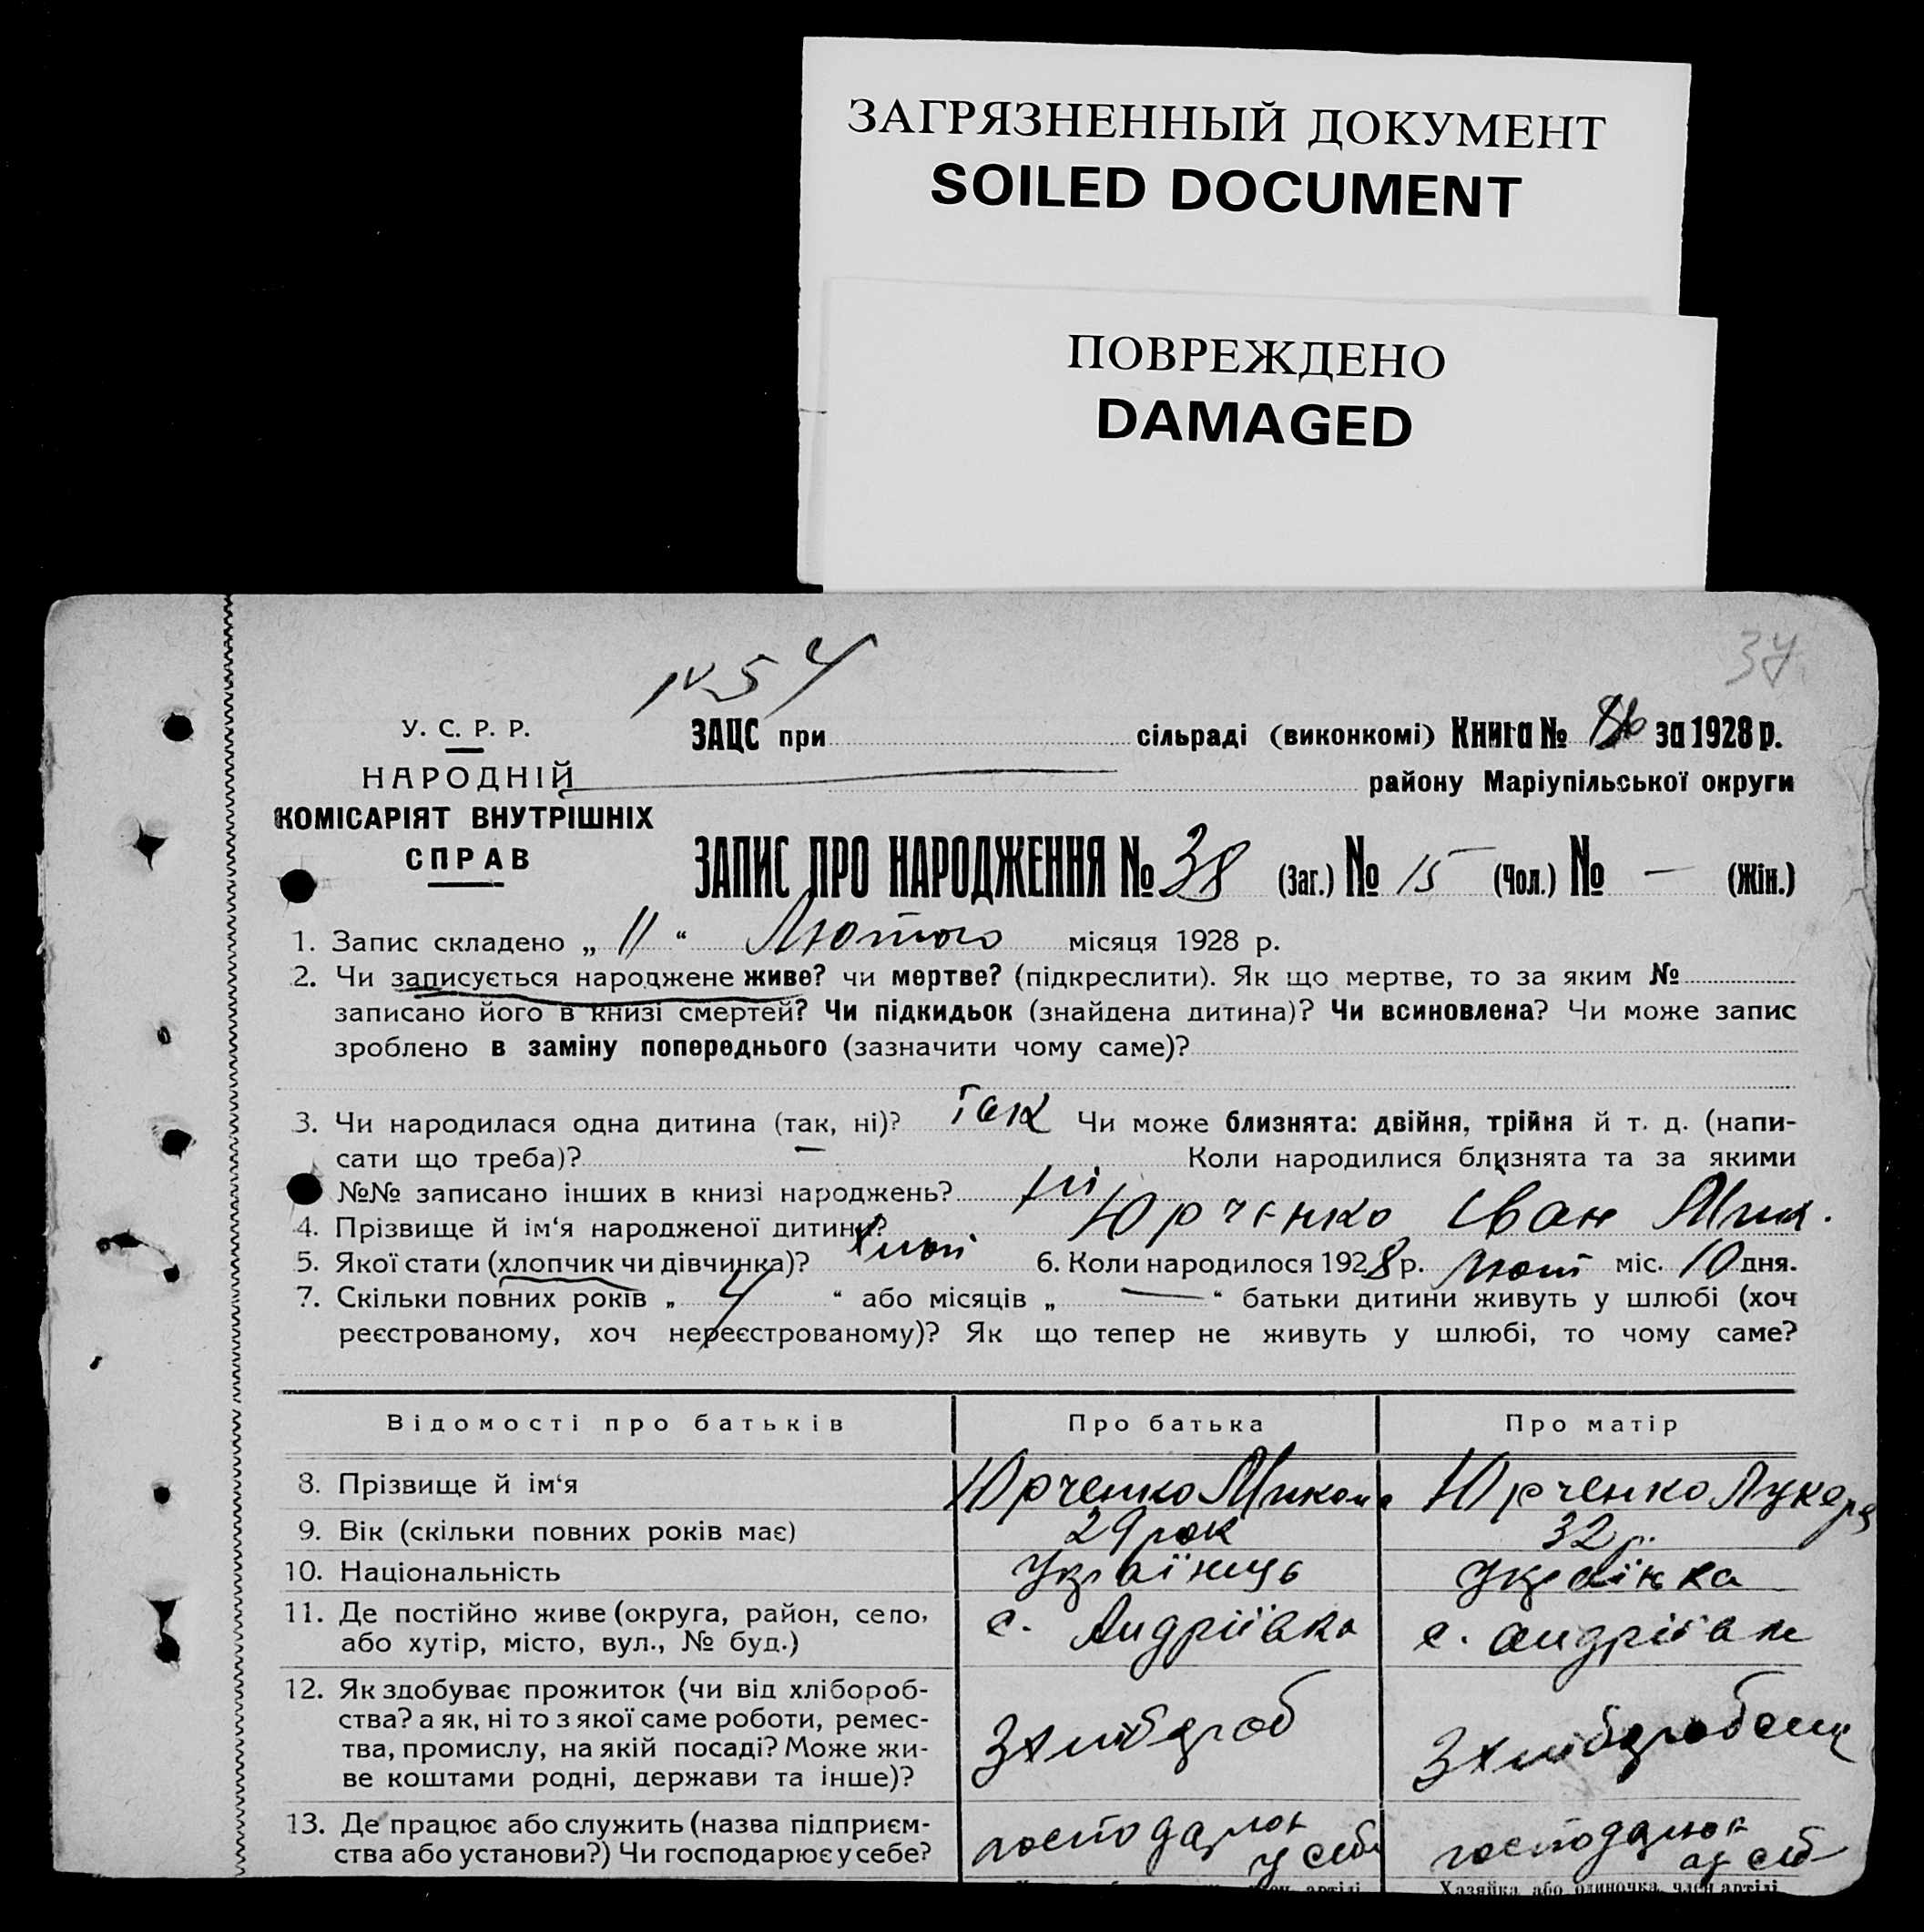 ЗАГРЯЗНЕННЫЙ ДОКУМЕНТ
SOILED DOCUMENT
ПОВРЕЖДЕНО
DAMAGED
37
№ 54
У. С. Р. Р.
НАРОДНІЙ
КОМІСАРІЯТ ВНУТРІШНІХ
СПРАВ
ЗАЦС при сільраді (виконкомі) Книга № за 1928 р.
району Маріупільської округи
ЗАПИС ПРО НАРОДЖЕННЯ № 38 (Заг.) № 15 (Чол.) № — (Жін.)
1. Запис складено „ 11 “ Лютого місяця 1928 р.
2. Чи записується народжене живе? чи мертве? (підкреслити). Як що мертве, то за яким №
записано його в книзі смертей? Чи підкидьок (знайдена дитина)? Чи всиновлена? Чи може запис
зроблено в заміну попереднього (зазначити чому саме)?
3. Чи народилася одна дитина (так, ні)? Так Чи може близнята: двійня, трійня й т. д. (напи-
сати що треба)? Коли народилися близнята та за якими
№№ записано інших в книзі народжень? ні
4. Прізвище й ім‘я народженої дитини? Юрченко Іван Мик.
5. Якої стати (хлопчик чи дівчинка)? 6. Коли народилося 1928 р. Лют міс. 10 дня.
7. Скільки повних років „ 4 “ або місяців „ — “ батьки дитини живуть у шлюбі (хоч
реєстрованому, хоч нереєстрованому)? Як що тепер не живуть у шлюбі, то чому саме?
Відомості про батьків Про батька Про матір
8. Прізвище й ім‘я Юрченко Микола Юрченко Лукеря
9. Вік (скільки повних років має) 29 рок 32 р.
10. Національність Українець Українка
11. Де постійно живе (округа, район, село, або хутір, місто, вул., № буд.) с. Андріївка с. Андріївка
12. Як здобуває прожиток (чи від хлібороб-
ства? а як, ні то з якої саме роботи, ремес-
тва, промислу, на якій посаді? Може жи-
ве коштами родні, держави та інше)?
З хлібороб
13. Де працює або служить (назва підприєм-
ства або установи?) Чи господарює у себе?
у себе
Хазяйка або одиночка, член артілі